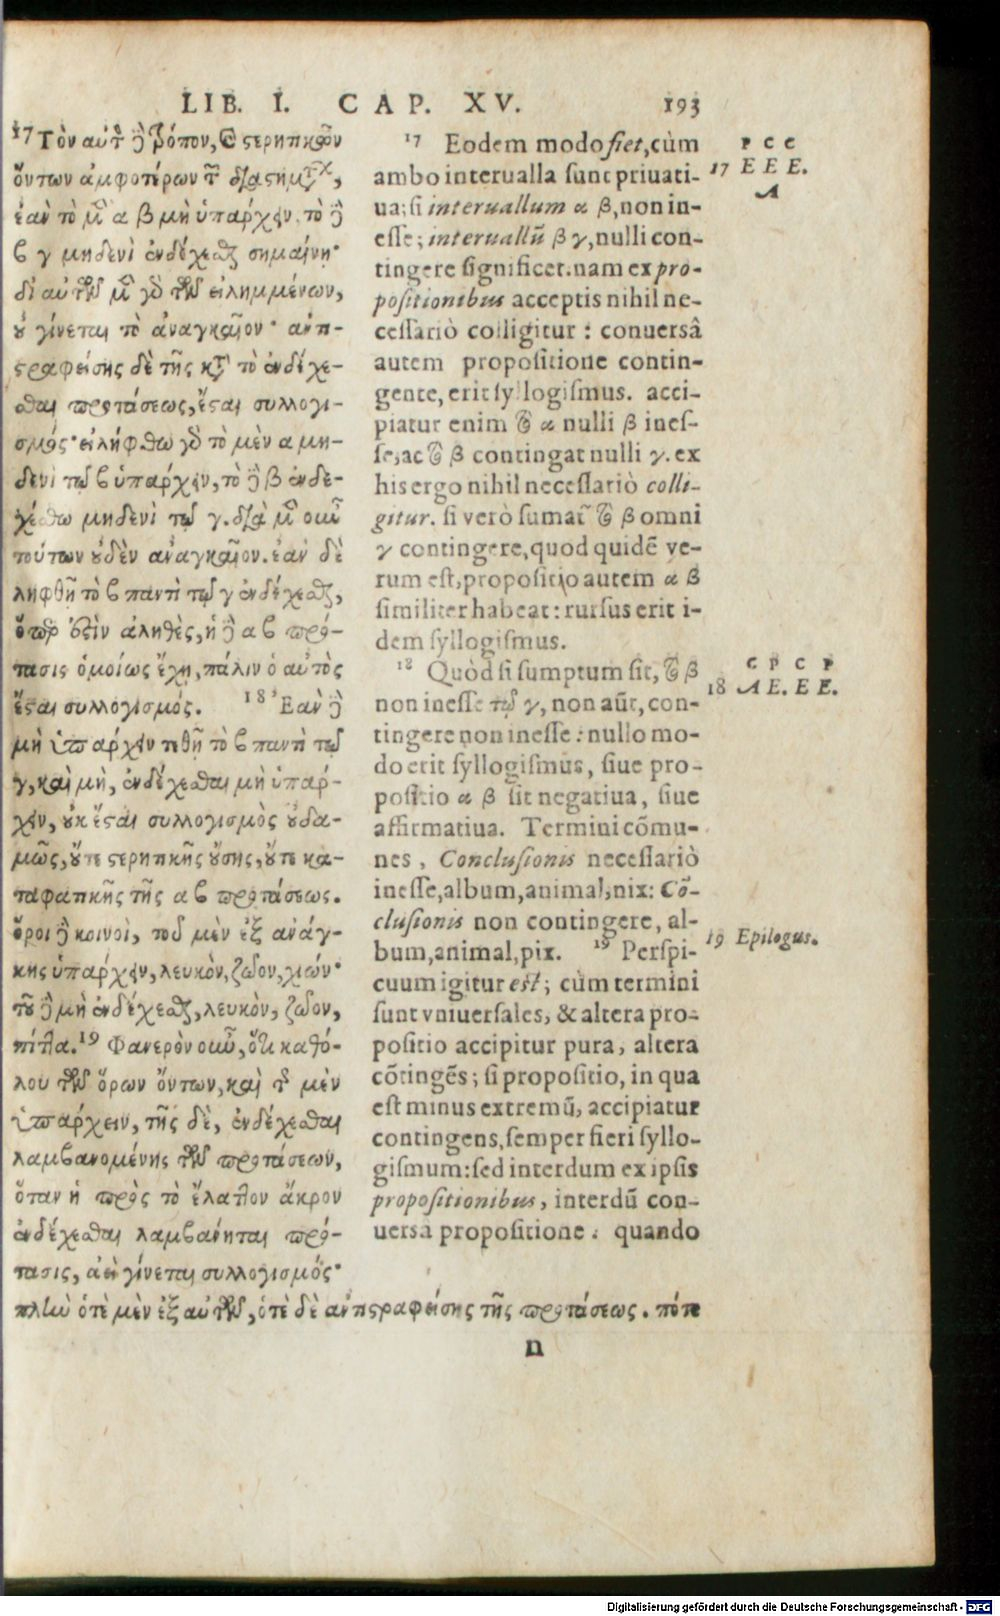 LIB. I. CAP. XV. 193
17 Τὸν αὐτὸν δὲ τρόπον, καὶ στερητικῶν
ὄντων ἀμφοτέρων τῶν διαστημάτων,
ἐὰν τὸ μὲν α β μὴ ὑπάρχειν, τὸ δὲ
β γ μηδενὶ ἐνδέχεσθαι σημαίνῃ·
δι' αὐτῶν μὲν γὰρ τῶν εἰλημμένων,
οὐ γίνεται τὸ ἀναγκαῖον· ἀντι-
στραφείσης δὲ τῆς κατὰ τὸ ἐνδέχε-
σθαι προτάσεως, ἔσται συλλογι-
σμός· εἰλήφθω γὰρ τὸ μὲν α μη-
δενὶ τῷ β ὑπάρχειν, τὸ δὲ β ἐνδε-
χέσθω μηδενὶ τῷ γ. διὰ μὲν οὖν
τούτων οὐδὲν ἀναγκαῖον. ἐὰν δὲ
ληφθῇ τὸ β παντὶ τῷ γ ἐνδέχεσθαι,
ὅπερ ἐστὶν ἀληθὲς, ἡ δὲ α β πρό-
τασις ὁμοίως ἔχῃ, πάλιν ὁ αὐτὸς
ἔσται συλλογισμός. 18 Ἐὰν δὲ
μὴ ὑπάρχειν τιθῇ τὸ β παντὶ τῷ
γ, καὶ μὴ, ἐνδέχεσθαι μὴ ὑπάρ-
χειν, οὐκ ἔσται συλλογισμὸς οὐδα-
μῶς, οὔτε στερητικῆς οὔσης, οὔτε κα-
ταφατικῆς τῆς α β προτάσεως.
ὅροι δὲ κοινοὶ, τοῦ μὲν ἐξ ἀνάγ-
κης ὑπάρχειν, λευκὸν, ζῶον, χιών·
τοῦ δὲ μὴ ἐνδέχεσθαι, λευκὸν, ζῶον,
πίττα. 19 Φανερὸν οὖν, ὅτι καθό-
λου τῶν ὅρων ὄντων, καὶ τῆς μὲν
ὑπάρχειν, τῆς δὲ, ἐνδέχεσθαι
λαμβανομένης τῶν προτάσεων,
ὅταν ἡ πρὸς τὸ ἔλαττον ἄκρον
ἐνδέχεσθαι λαμβάνηται πρό-
τασις, ἀεὶ γίνεται συλλογισμός·
πλὴν ὁτὲ μὲν ἐξ αὐτῶν, ὁτὲ δὲ ἀντιστραφείσης τῆς προτάσεως. πότε
17 Eodem modo fiet, cùm
ambo interualla sunt priuati-
ua; si interuallum α β, non in-
esse; interuallū β γ, nulli con-
tingere significet. nam ex pro-
positionibus acceptis nihil ne-
cessariò colligitur: conuersâ
autem propositione contin-
gente, erit syllogismus. acci-
piatur enim τὸ α nulli β ines-
se, ac τὸ β contingat nulli γ. ex
his ergo nihil necessariò colli-
gitur. si verò sumat᷑ τὸ β omni
γ contingere, quod quidē ve-
rum est, propositio autem α β
similiter habeat: rursus erit i-
dem syllogismus.
18 Quòd si sumptum sit, τὸ β
non inesse τῷ γ, non aūt, con-
tingere non inesse: nullo mo-
do erit syllogismus, siue pro-
positio α β sit negatiua, siue
affirmatiua. Termini cōmu-
nes, Conclusionis necessariò
inesse, album, animal, nix: Cō-
clusionis non contingere, al-
bum, animal, pix. 19 Perspi-
cuum igitur est; cùm termini
sunt vniuersales, & altera pro-
positio accipitur pura, altera
cōtingēs; si propositio, in qua
est minus extremū, accipiatur
contingens, semper fieri syllo-
gismum: sed interdum ex ipsis
propositionibus, interdū con-
uersa propositione: quando
P C C
17 E E E.
A
C P C P
18 A E. E E.
19 Epilogus.
n
Digitalisierung gefördert durch die Deutsche Forschungsgemeinschaft - DFG